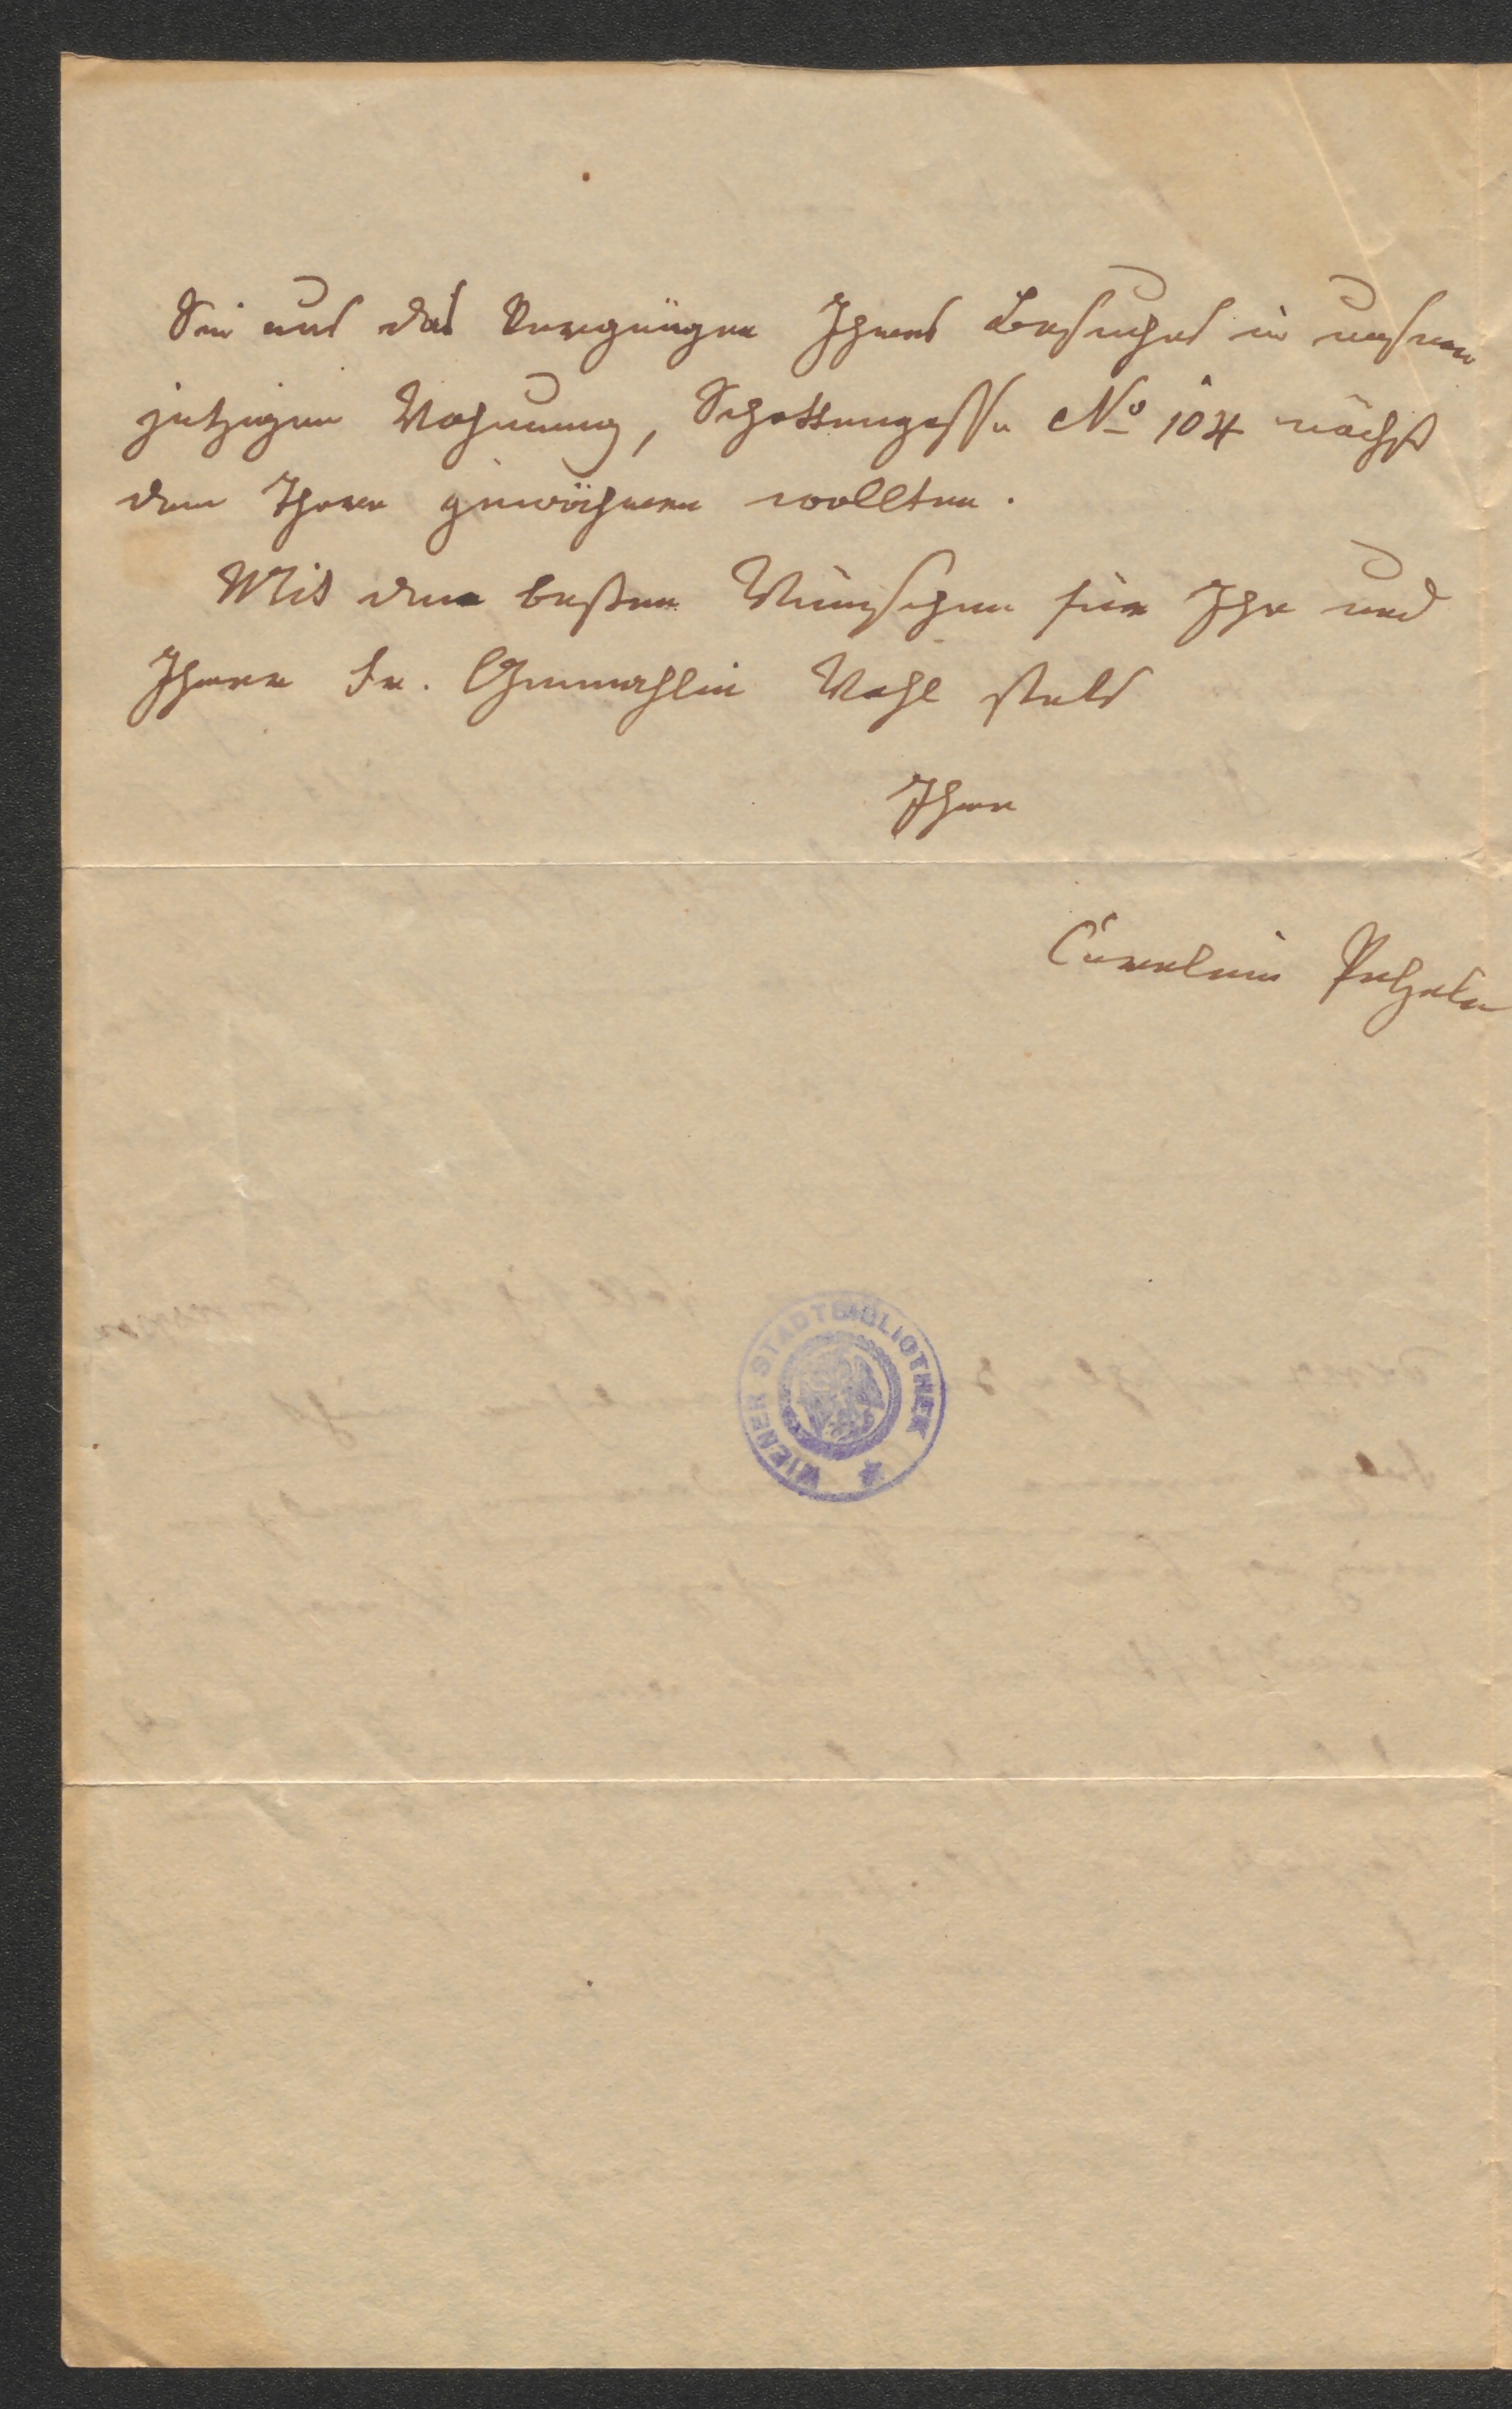 Sie uns das Vergnügen Ihres Besuches in unserer
jetzigen Wohnung, Schottengasse No 104 nächst
dem Thore gewähren wollten.
Mit den besten Wünschen für Ihr und
Ihrer Fr. Gemahlin Wohl stets
Ihre
Caroline Pichler
WIENER STADTBIBLIOTHEK